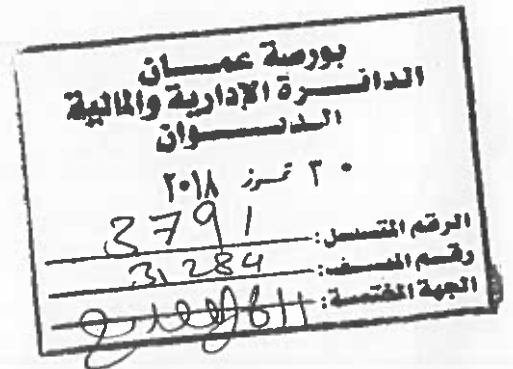 بورصة عمــان
الدائــرة الإدارية والمالية
الديــوان
٣٠ تموز ٢٠١٨
الرقم المتسلسل: 3791
رقــم الملــف: 31284
الجهة المختصة: